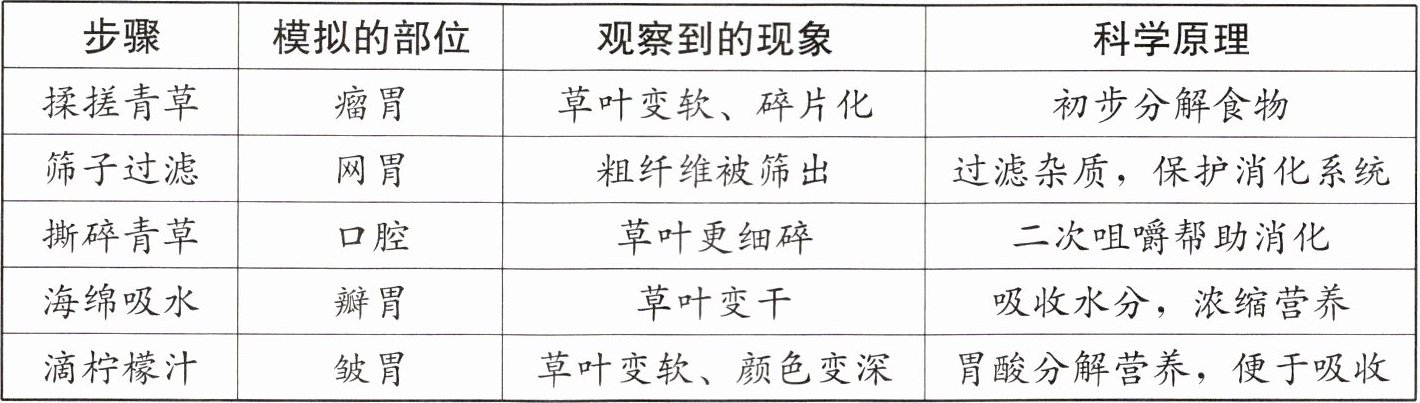 步骤 模拟的部位 观察到的现象 科学原理
揉搓青草 瘤胃 草叶变软、碎片化 初步分解食物
筛子过滤 网胃 粗纤维被筛出 过滤杂质，保护消化系统
撕碎青草 口腔 草叶更细碎 二次咀嚼帮助消化
海绵吸水 瓣胃 草叶变干 吸收水分，浓缩营养
滴柠檬汁 皱胃 草叶变软、颜色变深 胃酸分解营养，便于吸收